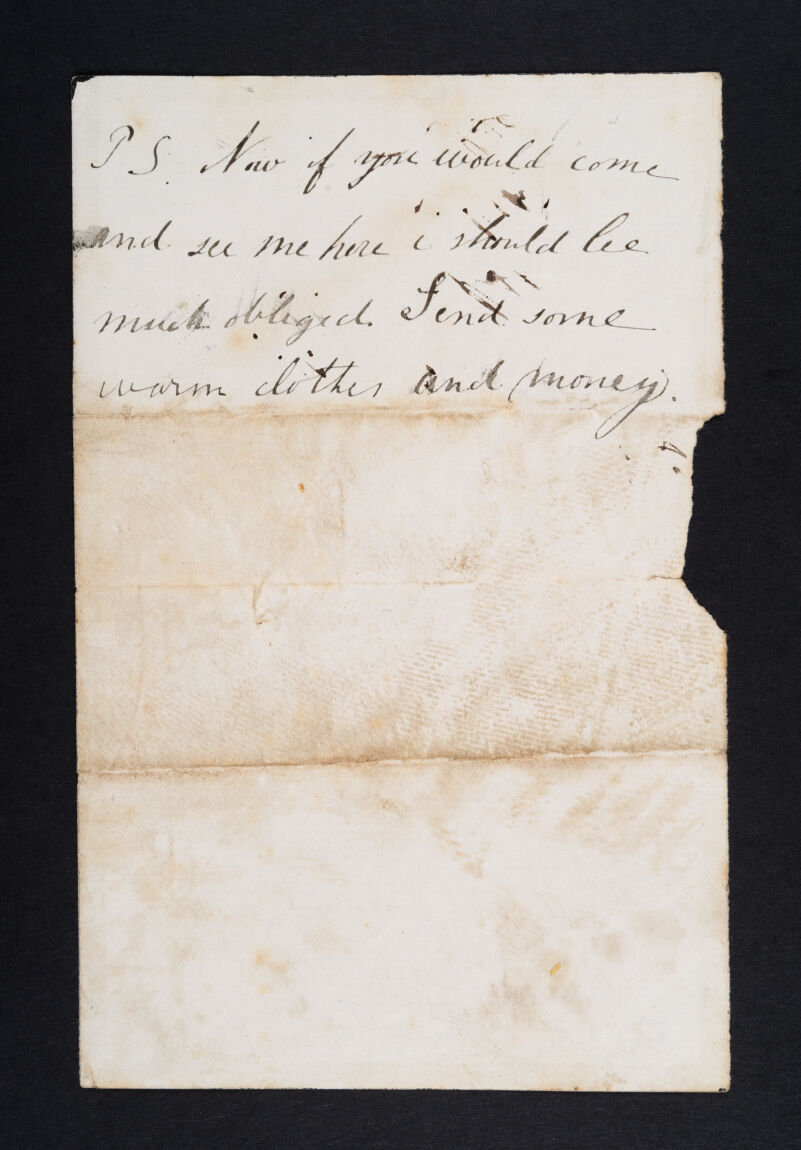 P S. Now if you would come
and see me here i should be
much obliged. Send some
warm clothes and money.